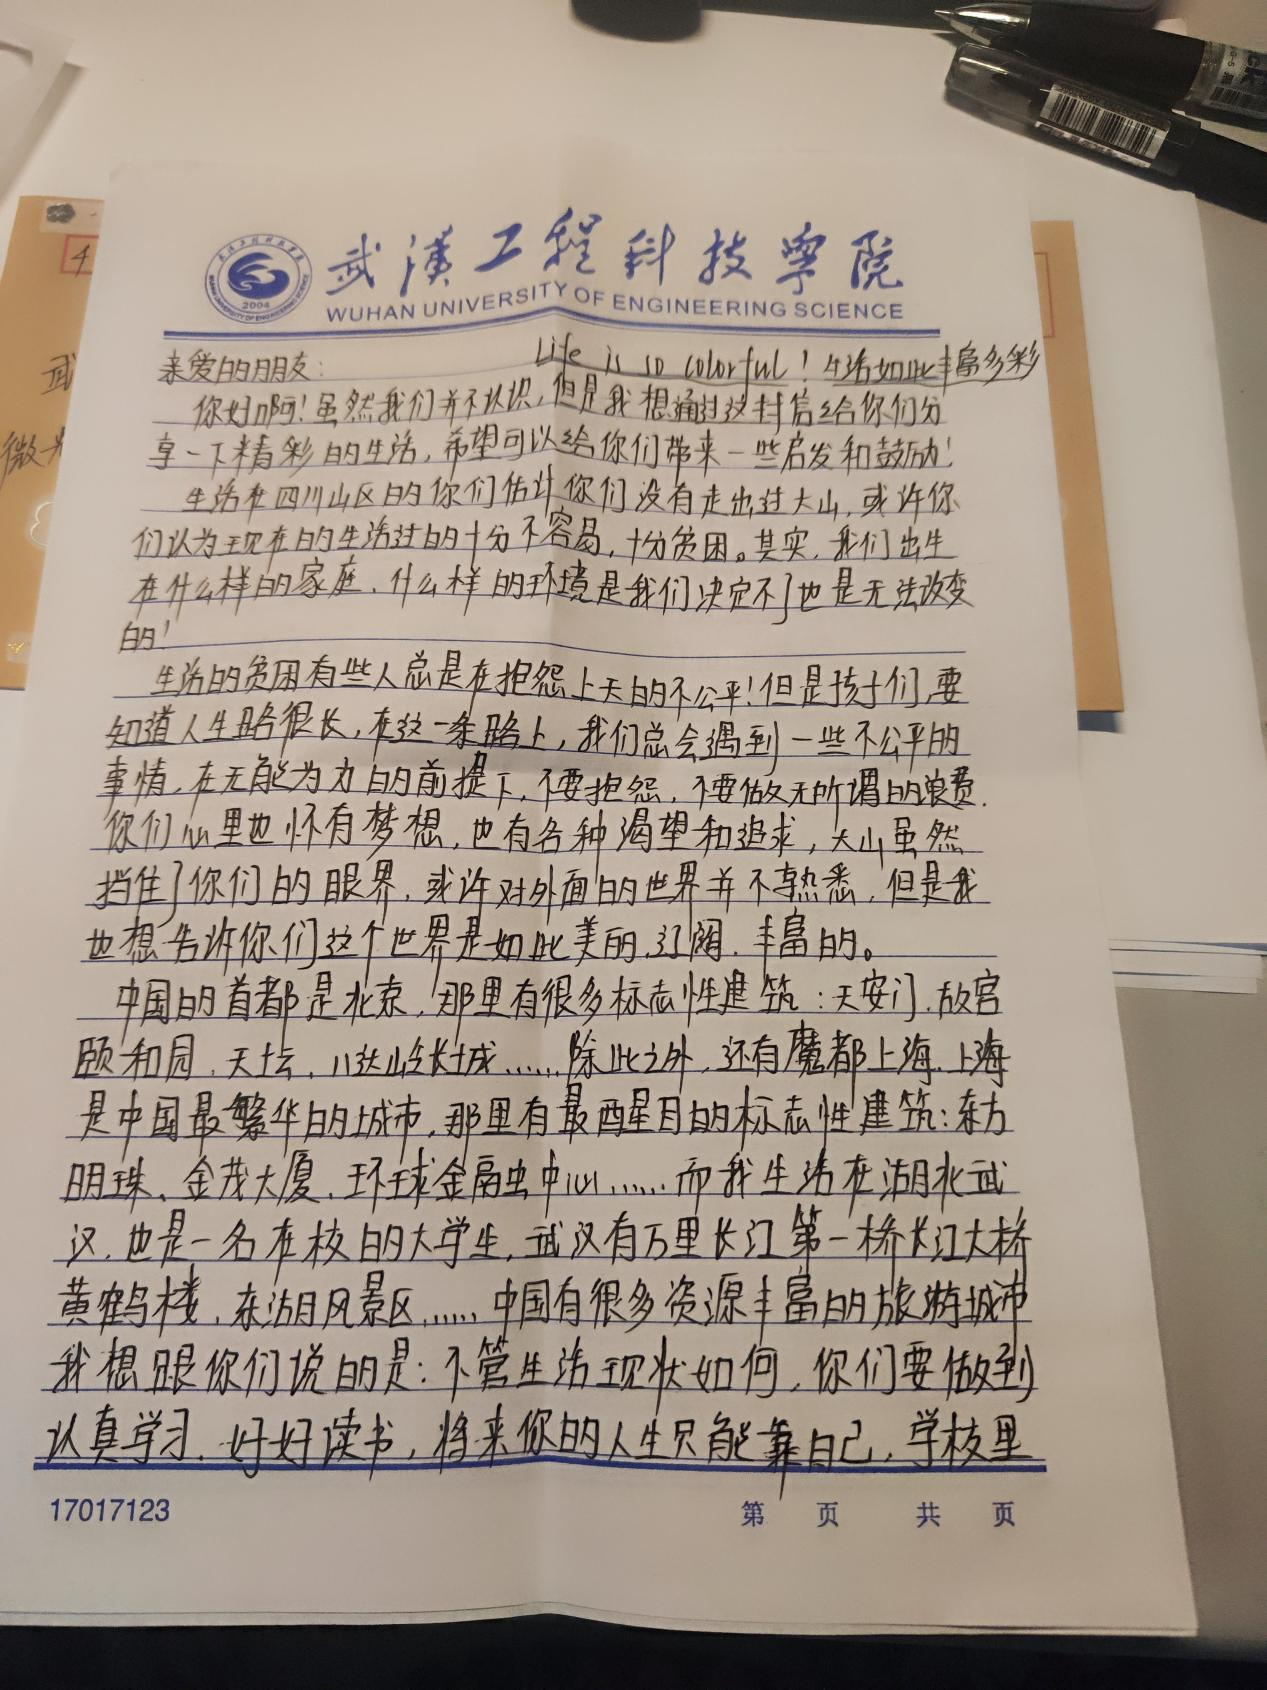 武汉工程科技学院
WUHAN UNIVERSITY OF ENGINEERING SCIENCE
2004
亲爱的朋友: Life is so colorful! 生活如此丰富多彩
你好啊!虽然我们并不认识,但是我想通过这封信给你们分
享一下精彩的生活,希望可以给你们带来一些启发和鼓励!
生活在四川山区的你们估计你们没有走出过大山,或许你
们认为现在的生活过的十分不容易,十分贫困。其实,我们出生
在什么样的家庭、什么样的环境是我们决定不了也是无法改变
的!
生活的贫困有些人总是在抱怨上天的不公平!但是孩子们,要
知道人生路很长,在这一条路上,我们总会遇到一些不公平的
事情,在无能为力的前提下,不要抱怨,不要做无所谓的浪费.
你们心里也怀有梦想,也有各种渴望和追求,大山虽然
挡住了你们的眼界,或许对外面的世界并不熟悉,但是我
也想告诉你们这个世界是如此美丽、辽阔、丰富的。
中国的首都是北京,那里有很多标志性建筑:天安门、故宫
颐和园、天坛、八达岭长城......除此之外,还有魔都上海,上海
是中国最繁华的城市,那里有最醒目的标志性建筑:东方
明珠、金茂大厦、环球金融中心......而我生活在湖北武
汉,也是一名在校的大学生,武汉有万里长江第一桥长江大桥
黄鹤楼、东湖风景区......中国有很多资源丰富的旅游城市
我想跟你们说的是:不管生活现状如何,你们要做到
认真学习、好好读书,将来你的人生只能靠自己,学校里
17017123 第 页 共 页
武
微光